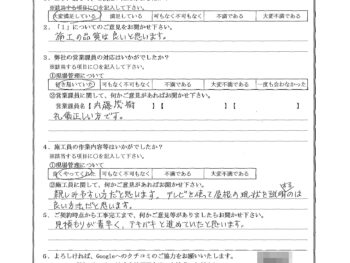 ※該当する項目に○を記入して下さい。
大変満足している 満足している 可もなく不可もなく 不満である 大変不満である
2.「1」についてのご意見をお聞かせ下さい。
施工の品質は良いと思います。
3.弊社の営業課員の対応はいかがでしたか?
※該当する項目に○を記入して下さい。
①現場管理について
可もなく不可もなく 不満である 大変不満である 一度も会わなかった
②営業課員に関して、何かご意見があればお聞かせ下さい。
営業課員名【 】【 】【 】
礼儀正しい方です。
4.施工員の作業内容等はいかがでしたか?
※該当する項目に○を記入して下さい。
①現場管理について
良くやってくれた 可もなく不可もなく 不満である 大変不満である
②施工員に関して、何かご意見があればお聞かせ下さい。
親しみやすい方だと思います。テレビを使って屋根の現状を説明するのは
良い方法だと思います。
5.ご契約時点から工事完工まで、何かご意見等がありましたらお聞かせ下さい。
見積もりが素早く、テキパキと進めていたと思います。
6.よろしければ、Googleへのクチコミのご協力をお願いいたします。